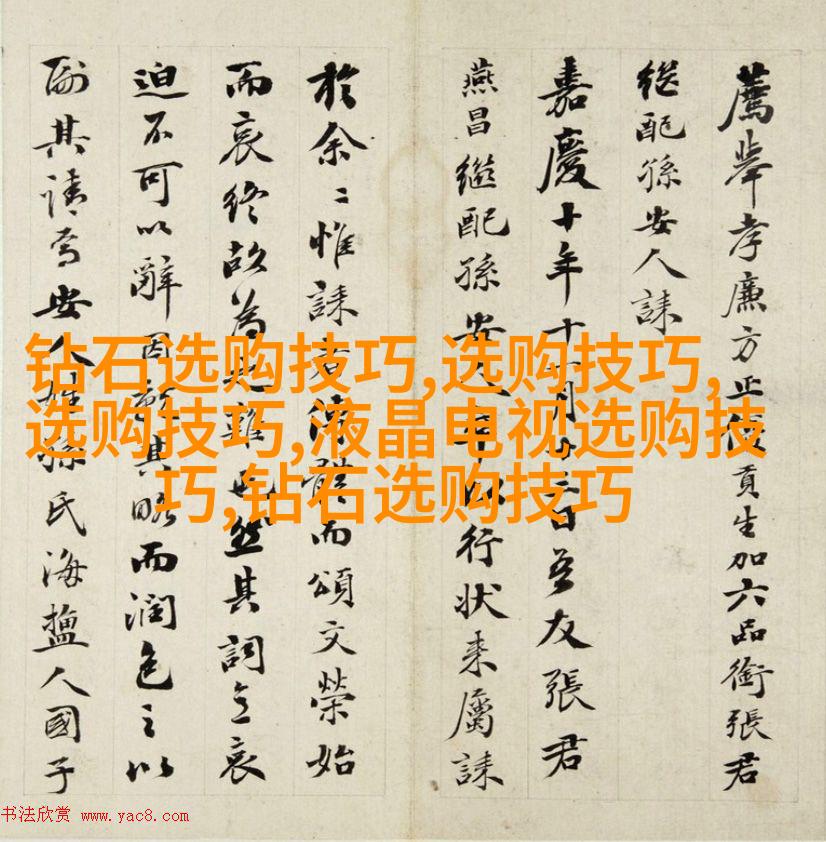 薦舉孝廉方正優貢生加六品銜張君
繼配孫安人誄
嘉慶十年十月廿日吾友張君
燕昌繼配孫安人卒以行狀來屬誄
於余〻惟誄者體而頌文榮始
而哀終故為此難也然其詞哀
迫不可以辭因敘其略而潤色之以
副其請焉安人姓孫氏海鹽人國子
钻石选购技巧,选购技巧,
选购技巧,液晶电视选购技
巧,钻石选购技巧
书法欣赏 www.yac8.com